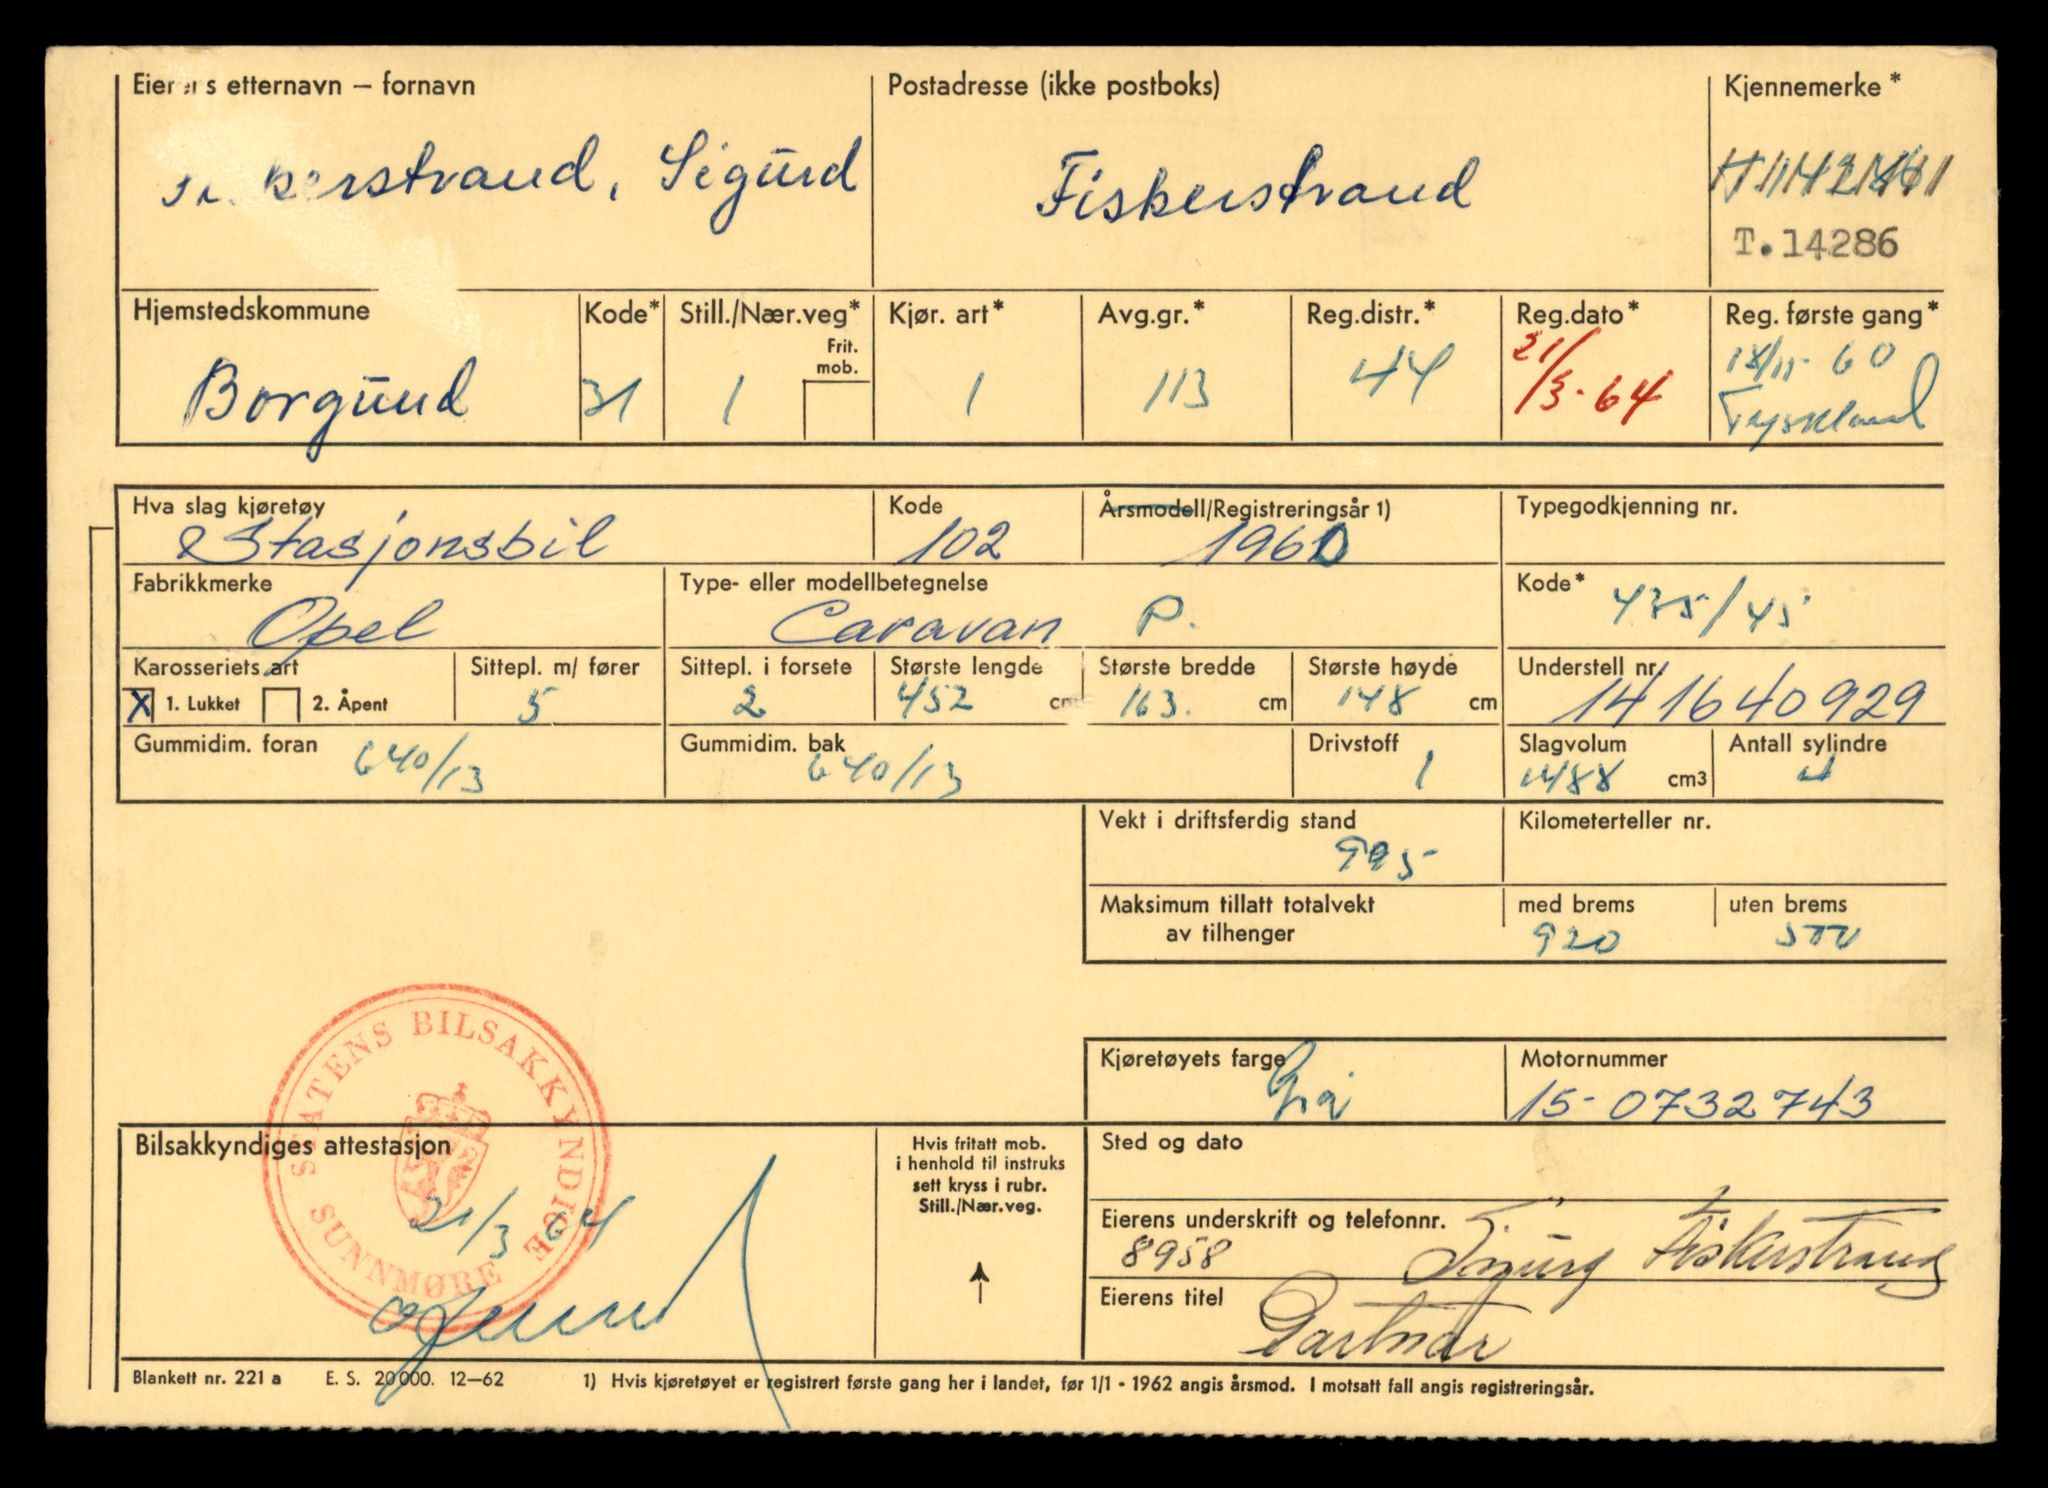 Eierens etternavn – fornavn Postadresse (ikke postboks) Kjennemerke*
Fiskerstrand, Sigurd Fiskerstrand
T.14286
Hjemstedskommune Kode* Still./Nær.veg* Kjør. art* Avg.gr.* Reg.distr.* Reg.dato* Reg. første gang*
Frit.
mob.
Borgund 31 1 1 113 44 21/3-64 18/11-60
Tyskland
Hva slag kjøretøy Kode Årsmodell/Registreringsår 1) Typegodkjenning nr.
Stasjonsbil 102 1960
Fabrikkmerke Type- eller modellbetegnelse Kode*
Opel Caravan P. 435/45
Karosseriets art Sittepl. m/ fører Sittepl. i forsete Største lengde Største bredde Største høyde Understell nr.
X 1. Lukket 2. Åpent 5 2 452 cm 163. cm 148 cm 141640929
Gummidim. foran Gummidim. bak Drivstoff Slagvolum Antall sylindre
640/13 640/13 1 1488 cm3 4
Vekt i driftsferdig stand Kilometerteller nr.
995
Maksimum tillatt totalvekt med brems uten brems
av tilhenger 920 500
STATENS BILSAKKYNDIGE
SUNNMØRE
Kjøretøyets farge Motornummer
Grå 15-0732743
Bilsakkyndiges attestasjon Hvis fritatt mob. Sted og dato
i henhold til instruks
sett kryss i rubr.
Still./Nær.veg.
21/3 64
Eierens underskrift og telefonnr.
8958 Sigurd Fiskerstrand
Eierens titel
Gartner
Blankett nr. 221 a E. S. 20000. 12–62 1) Hvis kjøretøyet er registrert første gang her i landet, før 1/1 - 1962 angis årsmod. I motsatt fall angis registreringsår.